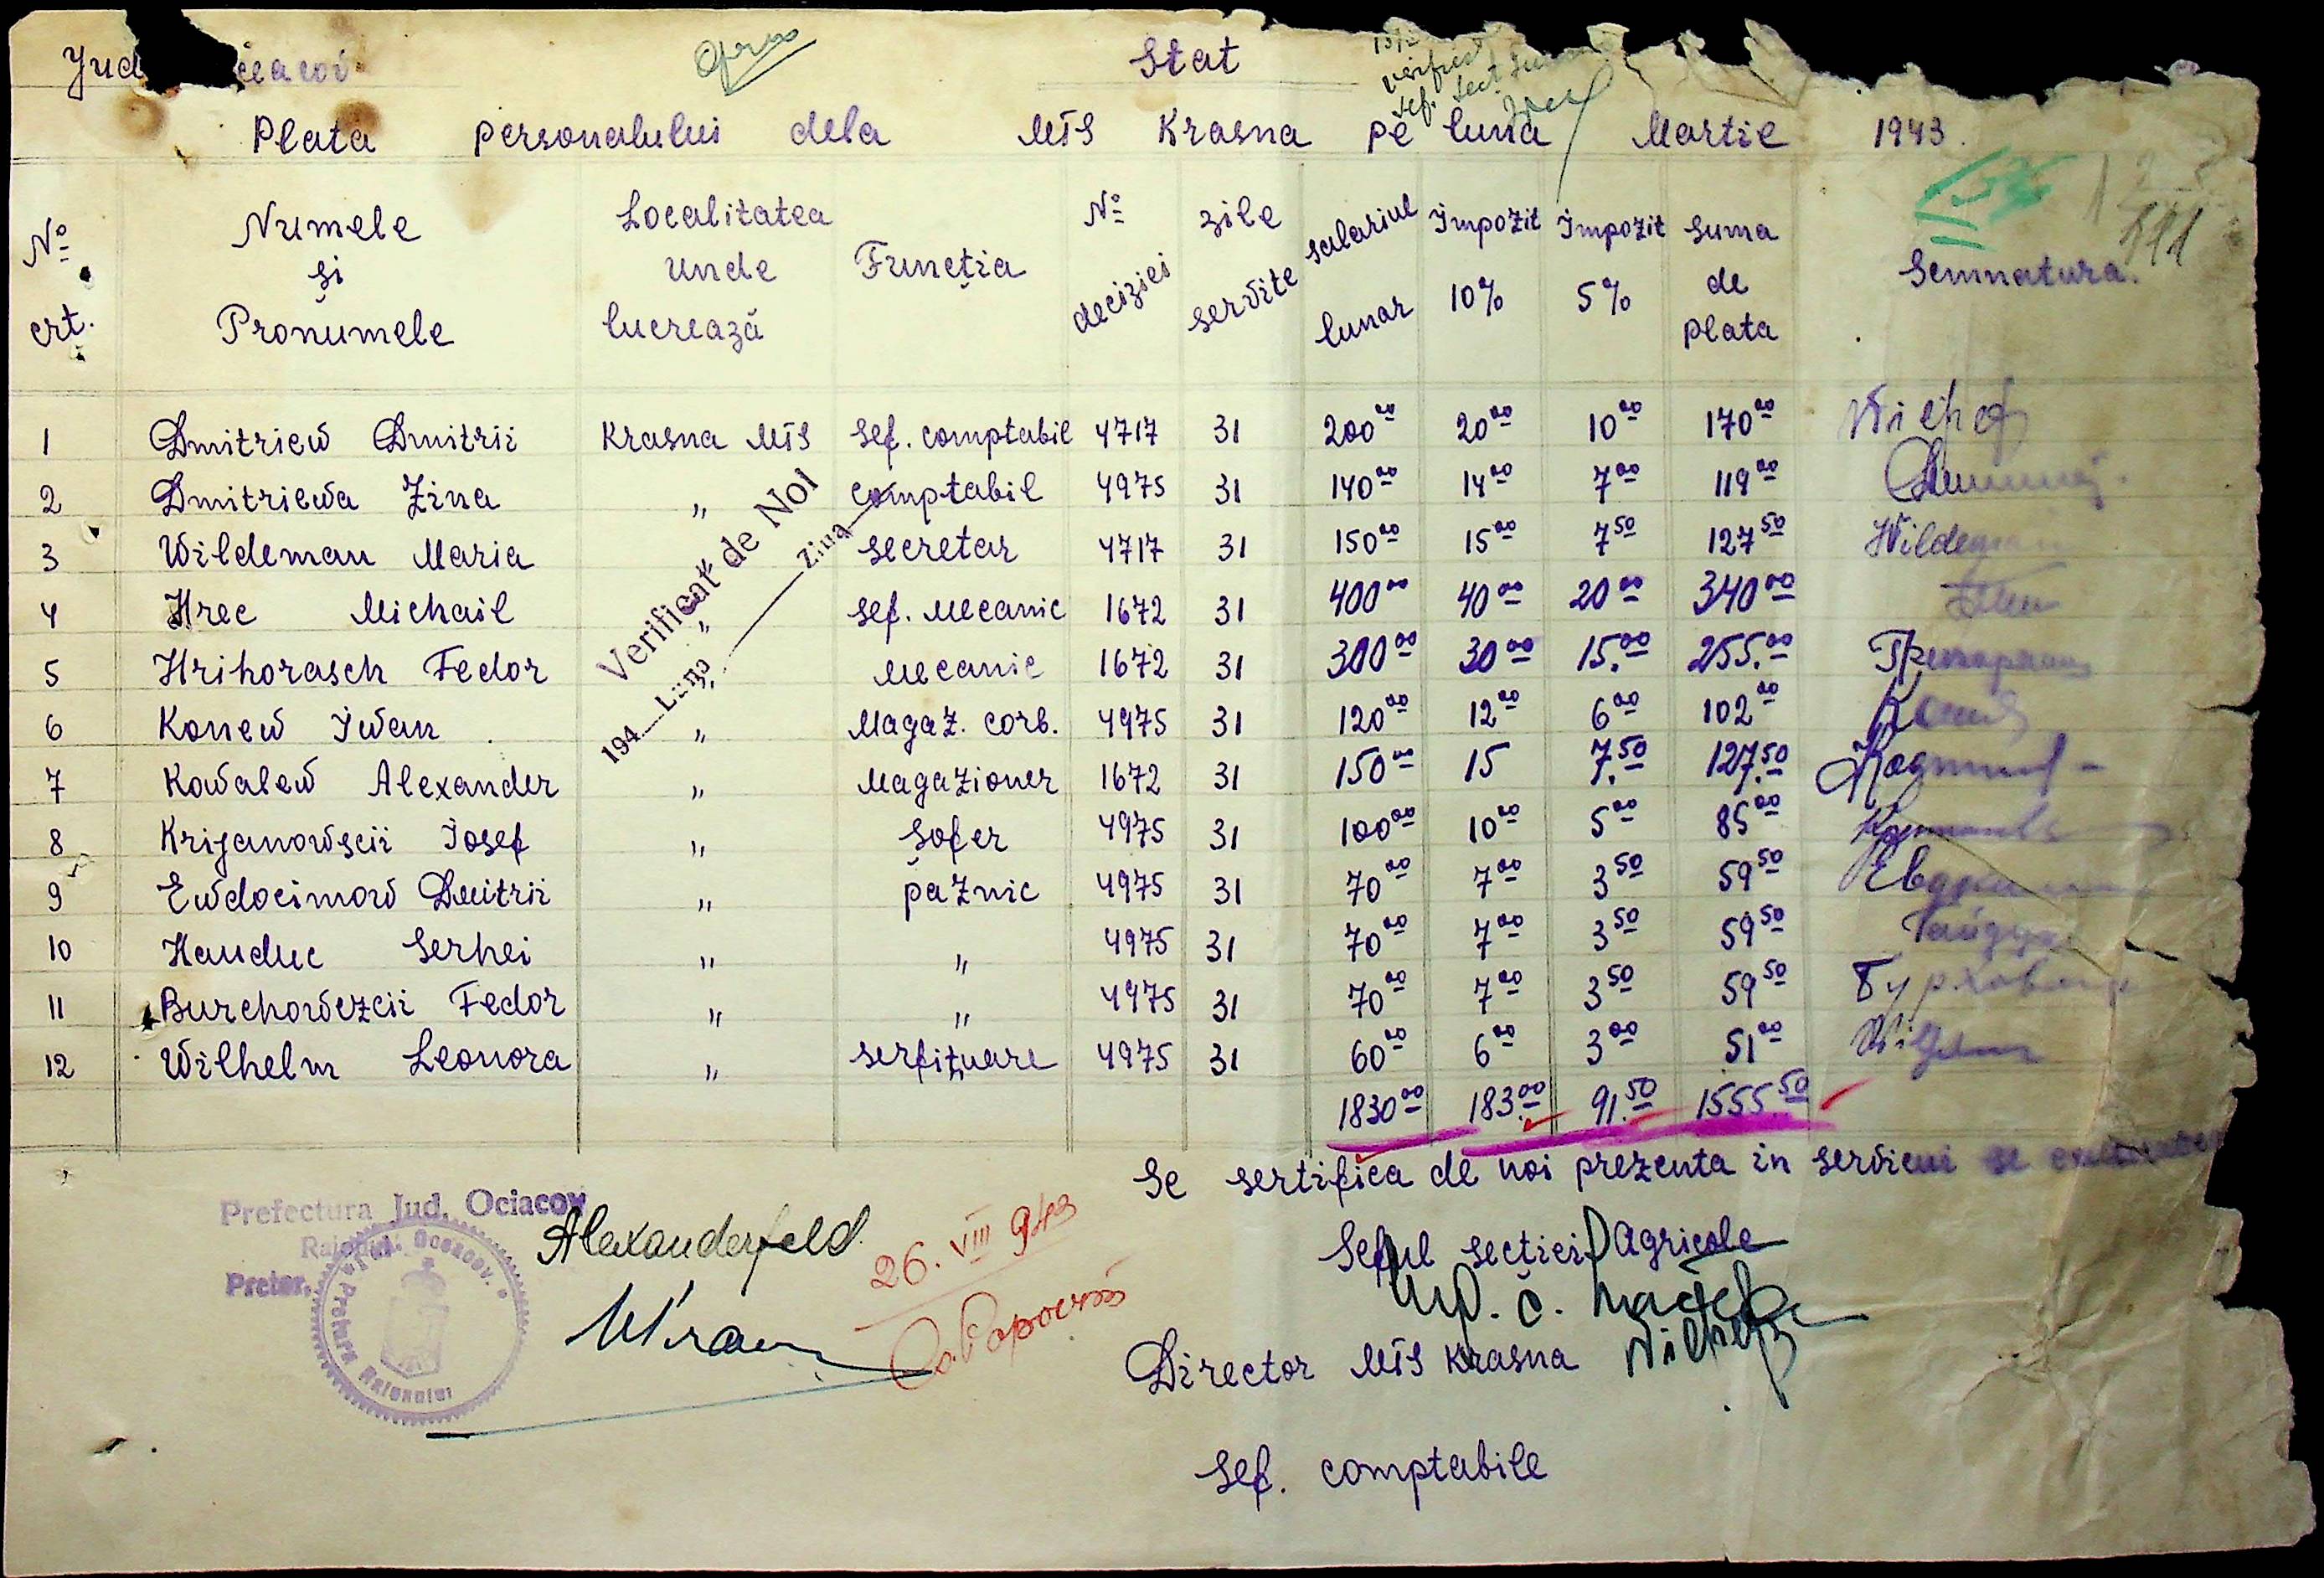 Jud ciacov Stat
Plata personalului dela MTS Krasna pe luna Martie 1943.
No crt. Numele și Pronumele Localitatea unde lucrează Funcția No deciziei zile servite salariul lunar Impozit 10% Impozit 5% suma de plata Semnatura.
1 Dmitriew Dmitrii Krasna MTS Sef. comptabil 4717 31 200 00 20 00 10 00 170 00
2 Dmitriewa Zina " comptabil 4975 31 140 00 14 00 7 00 119 00
3 Wildeman Maria " secretar 4717 31 150 00 15 00 7 50 127 50 Wildeman
4 Hrec Michail " sef. Mecanic 1672 31 400 00 40 00 20 00 340 00
5 Hrihorasch Fedor " Mecanic 1672 31 300 00 30 00 15.00 255.00
6 Konew Iwan " Magaz. corb. 4975 31 120 00 12 00 6 00 102 00
7 Kowalew Alexander " Magazioner 1672 31 150 00 15 7.50 127.50
8 Krijanowscii Iosef " Șofer 4975 31 100 00 10 00 5 00 85 00
9 Ewdocimow Dmitrii " paznic 4975 31 70 00 7 00 3 50 59 50
10 Hauduc Serhei " " 4975 31 70 00 7 00 3 50 59 50
11 Burchowezcii Fedor " " 4975 31 70 00 7 00 3 50 59 50
12 Wilhelm Leonora " serfițuare 4975 31 60 00 6 00 3 00 51 00
1830 00 183.00 91.50 1555 50
Verificat de Noi
194 Luna Ziua
Se sertifica de noi prezenta in servicui se
Prefectura Jud. Ociacow
Raionul Alexanderfeld
Pretor,
Pretura Raionului
26. VIII 943
Seful secției Agricole
Director MTS Krasna
Sef. comptabile